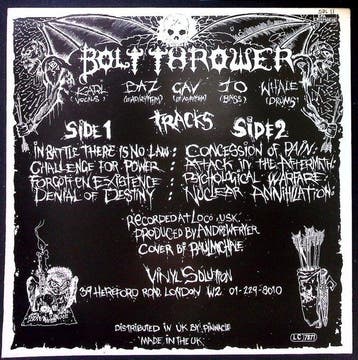 SOL 11
BOLT THROWER
KARL DAZ GAV JO WHALE
(VOCALS) (BASS) (DRUMS)
TRACKS
SIDE 1 SIDE 2
IN BATTLE THERE IS NO LAW : CONCESSION OF PAIN :
CHALLENGE FOR POWER : ATTACK IN THE AFTERMATH :
FORGOTTEN EXISTENCE : PSYCHOLOGICAL WARFARE :
DENIAL OF DESTINY : NUCLEAR ANNIHILATION :
RECORDED AT LOCO, USK.
PRODUCED BY ANDREW FRYER
COVER BY
VINYL SOLUTION
39 HEREFORD ROAD LONDON W2 01-229-8010
DISTRIBUTED IN UK BY PINNACLE
MADE IN THE UK
LC 7877